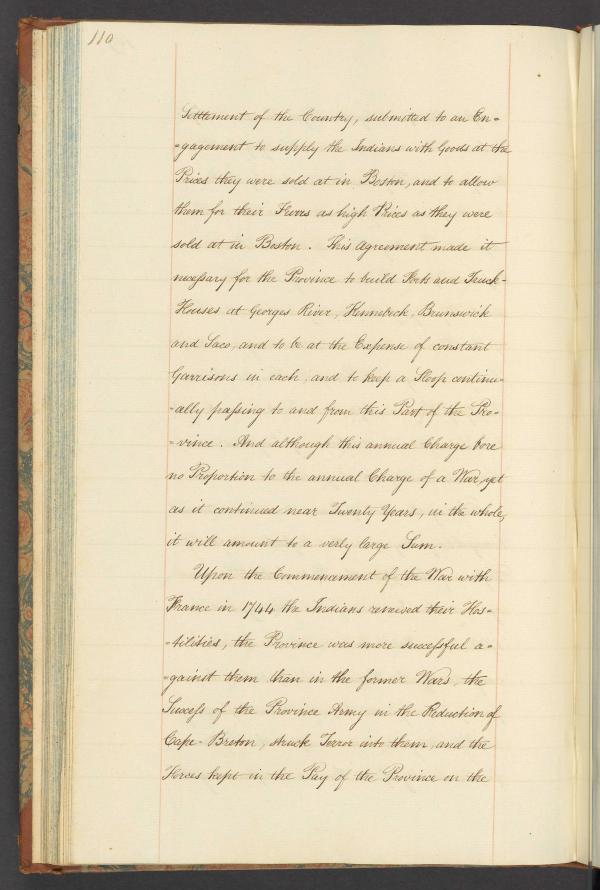 110
Setttement of the Country, submitted to an En=
=gagement to supply the Indians with Goods at the
Prices they were sold at in Boston, and to allow
them for their Fevrs as high Prices as they were
sold at in Boston. This Agreement made it
necessary for the Province to build Forts and Truck-
Houses at Georges River, Kennebeck, Brunswick
and Saco, and to be at the Expense of constant
Garrisons in each, and to keep a Sloop continu=
=ally passing to and from this Part of the Pro=
=vince. And although this annual Charge bore
no Proportion to the annual Charge of a War, yet
as it continued near Twenty Years, in the whole,
it will amount to a verly large Sum.
Upon the Commencement of the War with
France in 1744 the Indians renewed their Hos=
=tilities, the Province was more successful a=
=gainst them than in the former Wars, the
Success of the Province Army in the Reduction of
Cape-Breton, struck Terror into them, and the
Forces kept in the Pay of the Province on the